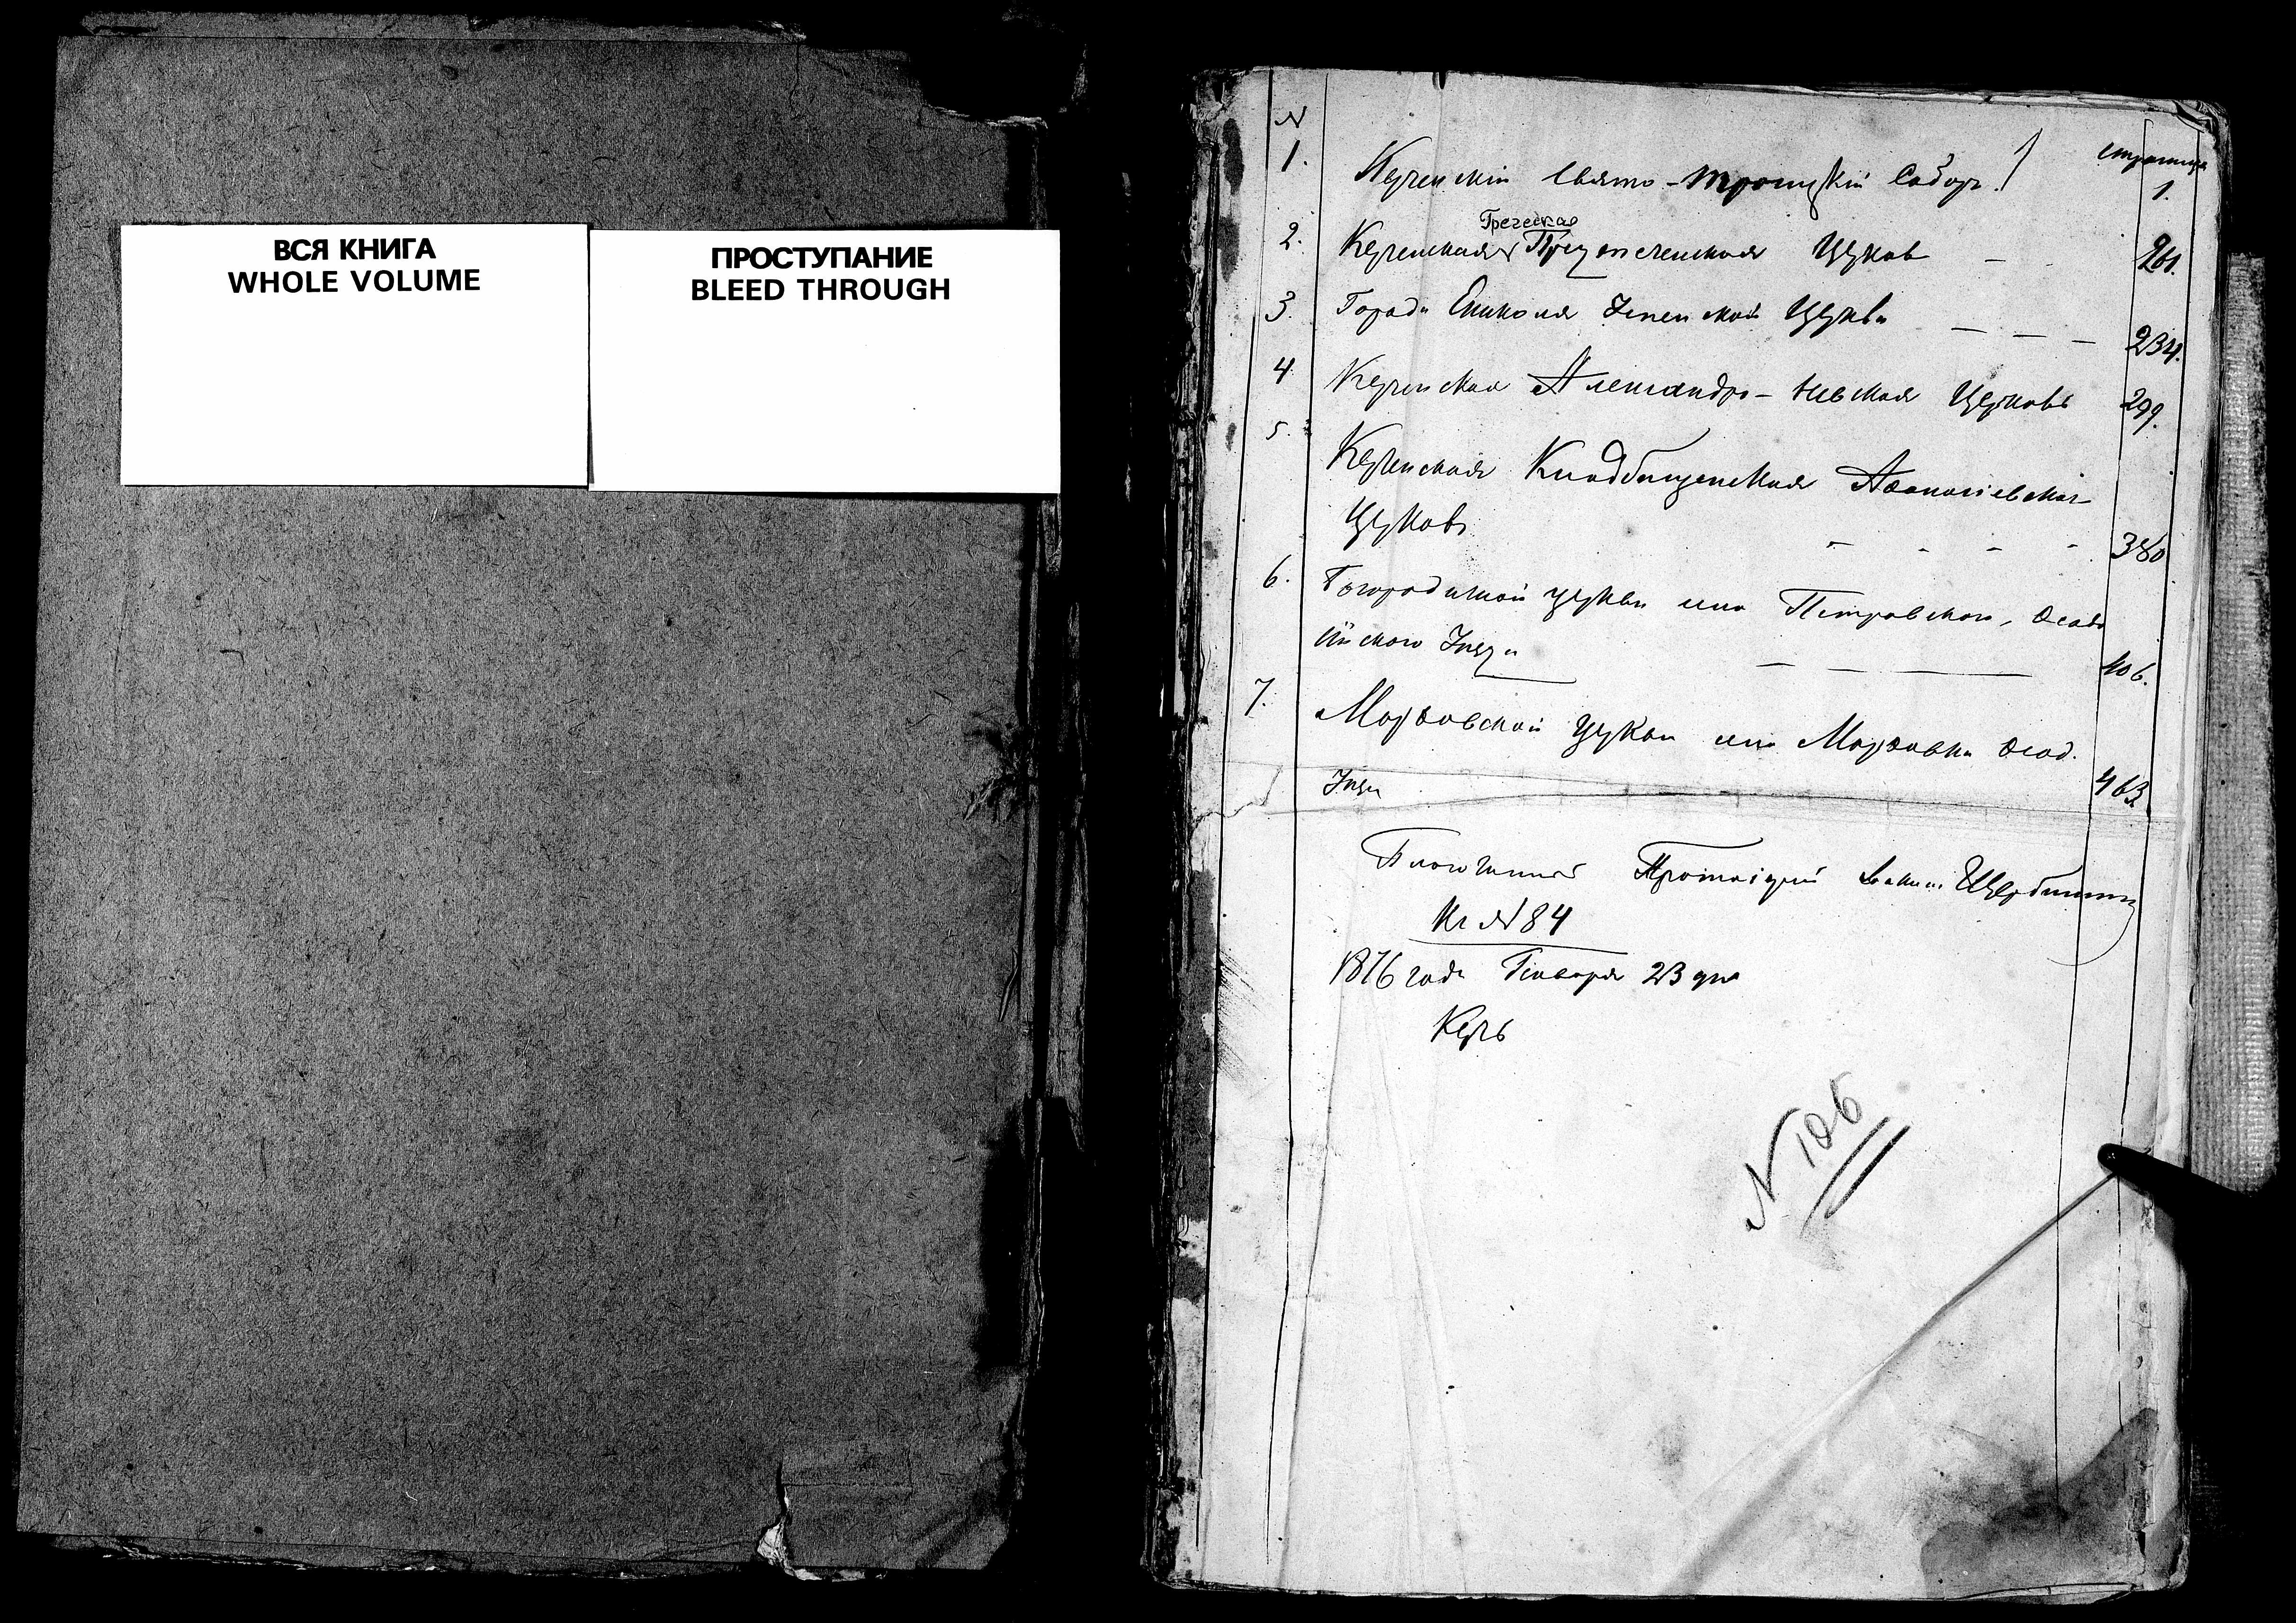 ВСЯ КНИГА
WHOLE VOLUME
ПРОСТУПАНИЕ
BLEED THROUGH
N
страница
1. Керченскій Свято-Троицкій Соборъ. 1.
Греческая
2. Керченская Предтеченская Церковь
3. Города Ениколя Успенской Церкви 234.
4. Керченская Александро-Невская Церковь 299.
5. Керченская Кладбищенская Аѳанасіевская
Церковь 380
6. Богородичной церкви села Петровскаго, Ѳеодо
сійскаго Уезда 406.
7. Марѳовской Церкви села Марѳовки Ѳеод.
Уезда 463
Благочинный Протоіерей Щербинин
N 84
1876 года Генваря 23 дня
Керчь
N 106